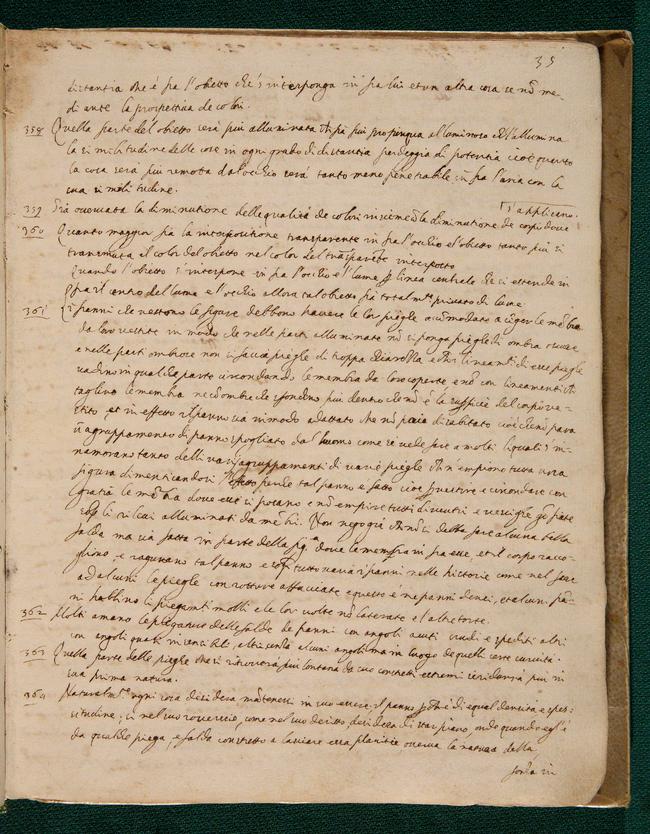 35
distantia che è fra l'obietto ch' s'interponga in fra lui et un altra cosa se nō me-
di ante la prospettiva de colori.
358 Quella parte del obietto serà piu alluminata ch fia piu propinqua al luminoso ch l'allumina
la similitudine delle cose in ogni grado di distantia perde gradi di potentia cioè quanto
la cosa sarà piu remota dal'occhio serà tanto mene penetrabile in fra l'aria con la
sua similitudine.
359 Sia osservata la diminutione delle qualità de colori insieme cō la diminutione de corpi dove
s'applicano.
360 Quanto maggior fia la interpositione transparente in fra l'occhio e l'obietto tanto piu si
transmuta il color del obietto nel color del trasparēte interposto
Quando l'obietto s'interpone in fra l'occhio e l'lume p linea centrale che si estende in
fra il centro del lume e l'occhio allora tal obietto fia totalmte privato di lume
361 I panni che vestono le figure debbono havere le lor pieghe accōmodate a cinger le mēbra
da loro vestite in modo che nelle parti alluminate nō si ponga pieghe di ombra oscura
e nelle parti ombrose non si faccia pieghe di troppa chiarezza e ch i lineamēti di esse pieghe
vadino in qualche parte circondando le membra da loro coperte e nō con lineamenti ch
taglino le membra ne cō ombre che sfondino piu dentro che nō è la superficie del corpo ve-
stito, et in effetto il panno sia in modo adattato che nō paia disabitato cioè che nō paia
ū agruppamento di panno spogliato dal huomo come se vede fare a molti li quali s'in-
namorano tanto delli varij agruppamenti di varie pieghe ch n'empiono tutta una
figura dimenticandosi l'effetto perche tal panno e fatto cioè p vestire e circondare con
gratia le mēbra dove essi si posano e nō empire tutti di ventri
li rilievi alluminati da mēbri. Non nego già ch nō si debba fare alcuna bella
falda ma sia fatta in parte della figa dove la membra in fra esse, et il corpo racco-
glino, e ragunano tal panno e sopra tutto varia i panni nelle historie come nel fare
ad alcuni le pieghe con rotture affacciate e questo è ne panni densi, et alcun pan-
ni habbino li piegamti molli e le lor volte nō laterate et l'altre torte.
362 Molti amano le piegature delle falde de panni con angoli acuti crudi e spediti altri
con angoli quasi insensibili, altri senza alcuni angoli ma in luogo de quelli certe curvità.
363 Quella parte delle pieghe che si ritroverà piu lontana da suo constretti estremi si ridurrà piu in
sua prima natura.
364 Naturalmte ogni cosa desidera mātenersi in suo essere. il panno p ch è di equal densita e spes-
situdine; si nel suo rovescio, come nel suo deritto, desidera di star piano, onde quando egl'è
da qualche piega, o falda constretto a lasciare essa planitie osserva la natura della
forza in